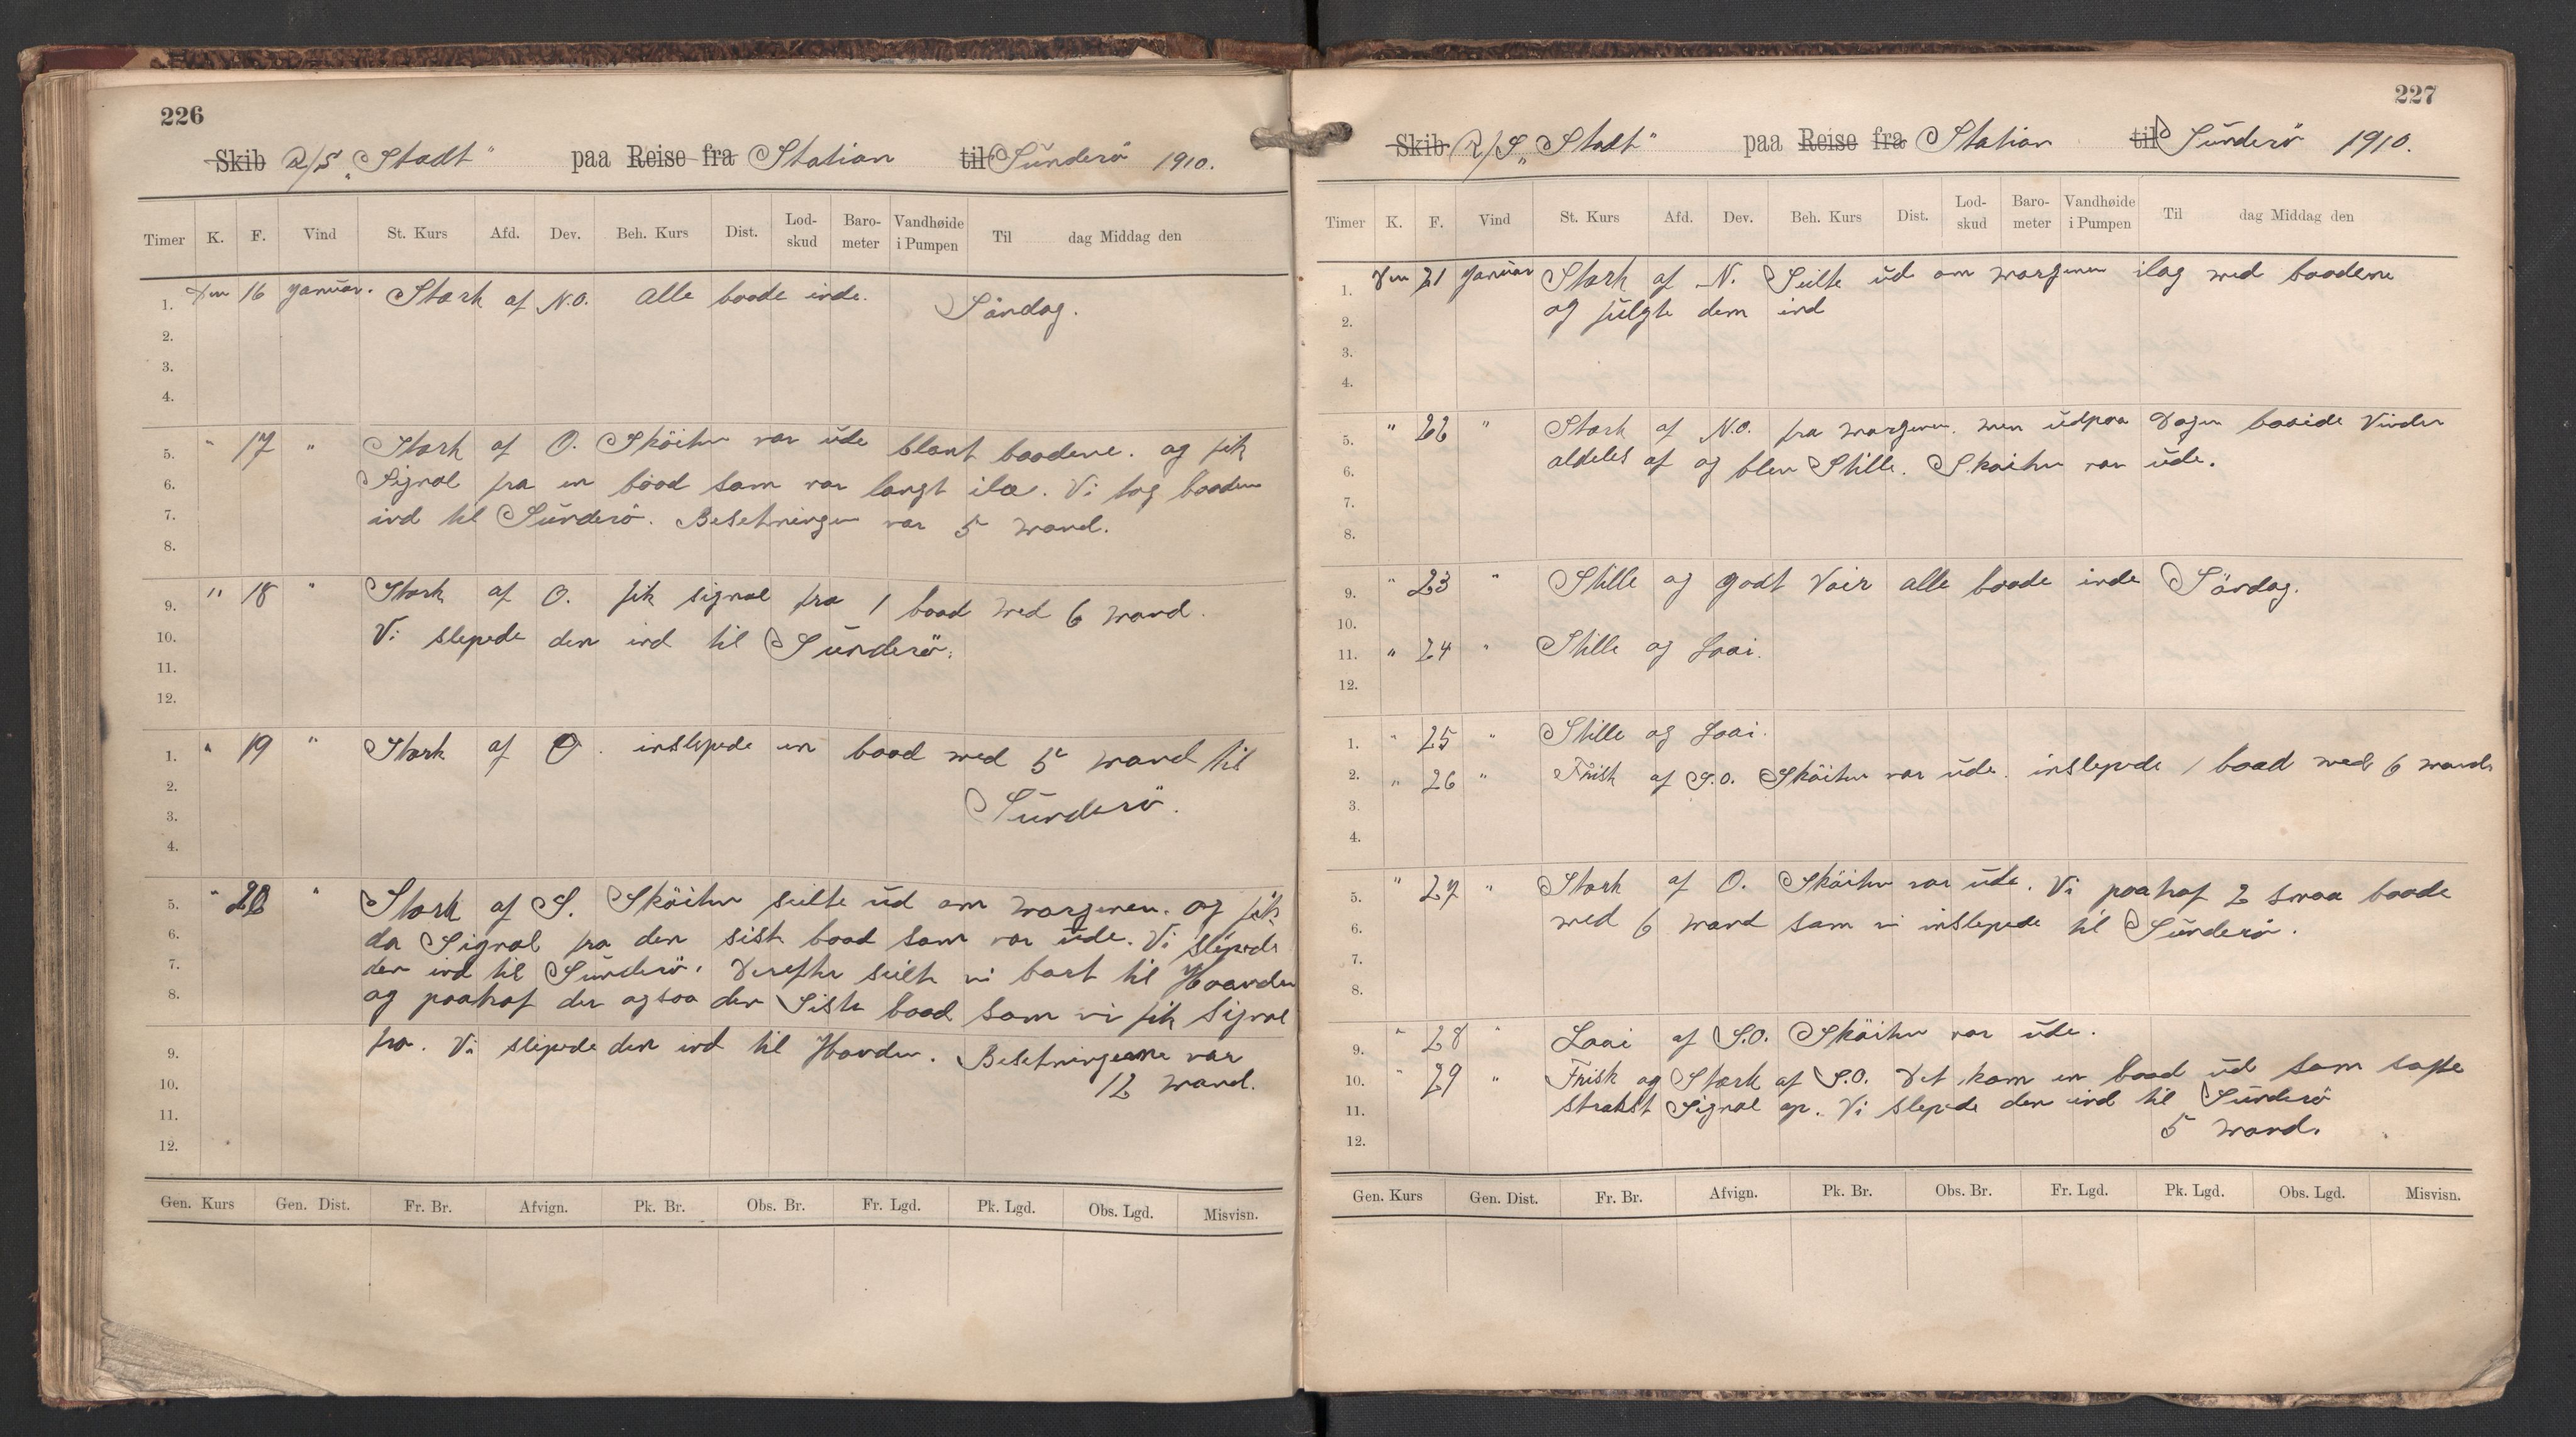 226
Skib R/S „Stadt" paa Reise fra Station til Sünderö 1910.
Timer K. F. Vind St. Kurs Afd. Dev. Beh. Kurs Dist. Lod-skud Baro-meter Vandhøide i Pumpen Til dag Middag den
1. Den 16 Januar. Stærk af N.O. Alle baade inde. Söndag.
2.
3.
4.
5. " 17 " Stærk af O. Sköiten var ude blant baadene. og fik
6. Signal fra en baad som var langt ilæ. Vi tog baaden
7. ind til Sünderö. Besetningen var 5 mand.
8.
9. " 18 " Stærk af O. fik signal fra 1 baad med 6 mand.
10. Vi slepede den ind til Sünderö.
11.
12.
1. " 19 " Stærk af O. inslepede en baad med 5 mand til
2. Sünderö.
3.
4.
5. " 20 " Stærk af S. Sköiten seilte ud om morgenen. og fik
6. da Signal fra den siste baad som var ude. Vi slepede
7. den ind til Sünderö. Derefter seilte vi bort til Haavden
8. og paatraf der ogsaa den Siste baad som vi fik Signal
9. fra. Vi slepede den ind til Havden. Besetningerne var
10. 12 mand.
11.
12.
Gen. Kurs Gen. Dist. Fr. Br. Afvign. Pk. Br. Obs. Br. Fr. Lgd. Pk. Lgd. Obs. Lgd. Misvisn.
227
Skib R/S „Stadt" paa Reise fra Station til Sünderö 1910.
Timer K. F. Vind St. Kurs Afd. Dev. Beh. Kurs Dist. Lod-skud Baro-meter Vandhøide i Pumpen Til dag Middag den
1. Den 21 Januar Stærk af N. Seilte ud om morgenen ilag med baadene
2. og fulgte dem ind
3.
4.
5. " 22 " Stærk af N.O. fra morgenen. men udpaa Dagen Vinden
6. aldeles af og blev Stille. Skoiten var ude.
7.
8.
9. " 23 " Stille og godt Veir alle baade inde Söndag.
10.
11. " 24 " Stille og Laai.
12.
1. " 25 " Stille og Laai.
2. " 26 " Frisk af S.O. Sköiten var ude. inslepede 1 baad med 6 mand
3.
4.
5. " 27 " Stærk af O. Sköiten var ude. Vi paatraf 2 smaa baade
6. med 6 mand som vi inslepede til Sünderö.
7.
8.
9. " 28 " Laai af S.O. Sköiten var ude.
10. " 29 " Frisk og Stærk af S.O. Det kom en baad ud som satte
11. strakst Signal op. Vi slepede den ind til Sünderö
12. 5 mand.
Gen. Kurs Gen. Dist. Fr. Br. Afvign. Pk. Br. Obs. Br. Fr. Lgd. Pk. Lgd. Obs. Lgd. Misvisn.